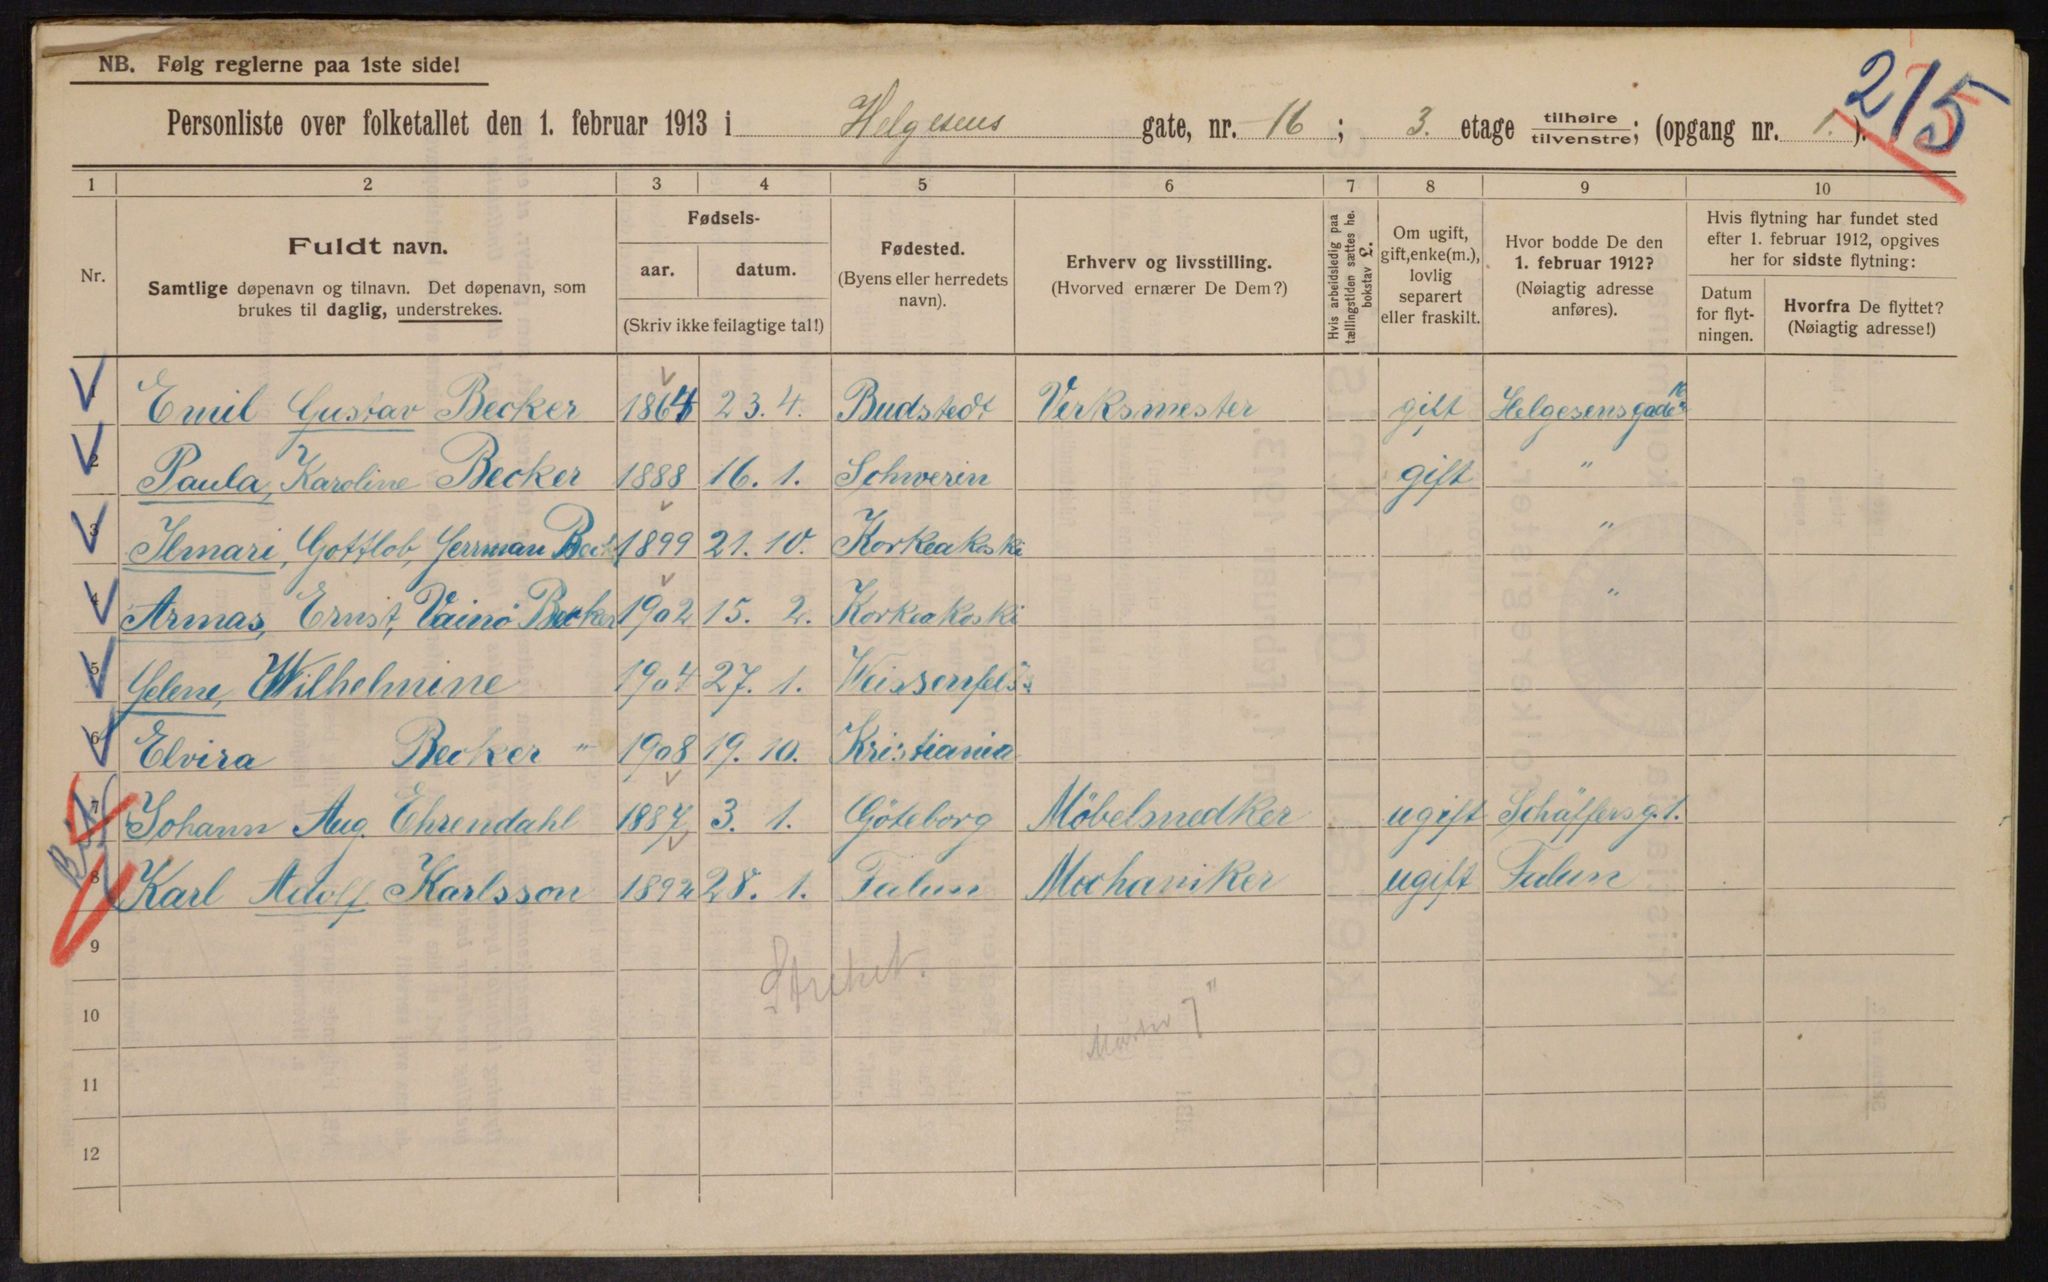 NB. Følg reglerne paa 1ste side!
215
Personliste over folketallet den 1. februar 1913 i Helgesens gate, nr. 16 ; 3. etage tilhøire / tilvenstre; (opgang nr. 1. ).
1 2 3 4 5 6 7 8 9 10
Nr.
Fuldt navn.
Samtlige døpenavn og tilnavn. Det døpenavn, som
brukes til daglig, understrekes.
Fødsels-
aar. datum.
(Skriv ikke feilagtige tal!)
Fødested.
(Byens eller herredets
navn).
Erhverv og livsstilling.
(Hvorved ernærer De Dem?)
Hvis arbeidsledig paa
tællingstiden sættes he.
bokstav £.
Om ugift,
gift, enke(m.),
lovlig
separert
eller fraskilt.
Hvor bodde De den
1. februar 1912?
(Nøiagtig adresse
anføres).
Hvis flytning har fundet sted
efter 1. februar 1912, opgives
her for sidste flytning:
Datum
for flyt-
ningen.
Hvorfra De flyttet?
(Nøiagtig adresse!)
1 Emil Gustav Becker 1864 23. 4. Budstedt Verksmester gift Helgesensgade 16
2 Paula, Karoline Becker 1888 16. 1. Schwerin gift "
3 Ilmari, Gottlob, Herrman Becker 1899 21. 10. Korkeakoski "
4 Armas, Ernst, Vainö Becker 1902 15. 2. Korkeakoski "
5 Helene, Wilhelmine 1904 27. 1. Weissenfels
6 Elvira Becker " 1908 19. 10. Kristiania
7 Johann Aug. Ehrendahl 1887 3. 1. Göteborg Möbelsnedker ugift Schäffersg. 1.
8 Karl Adolf Karlsson 1892 28. 1. Falun Mechaniker ugift Falun
9
10
11
12